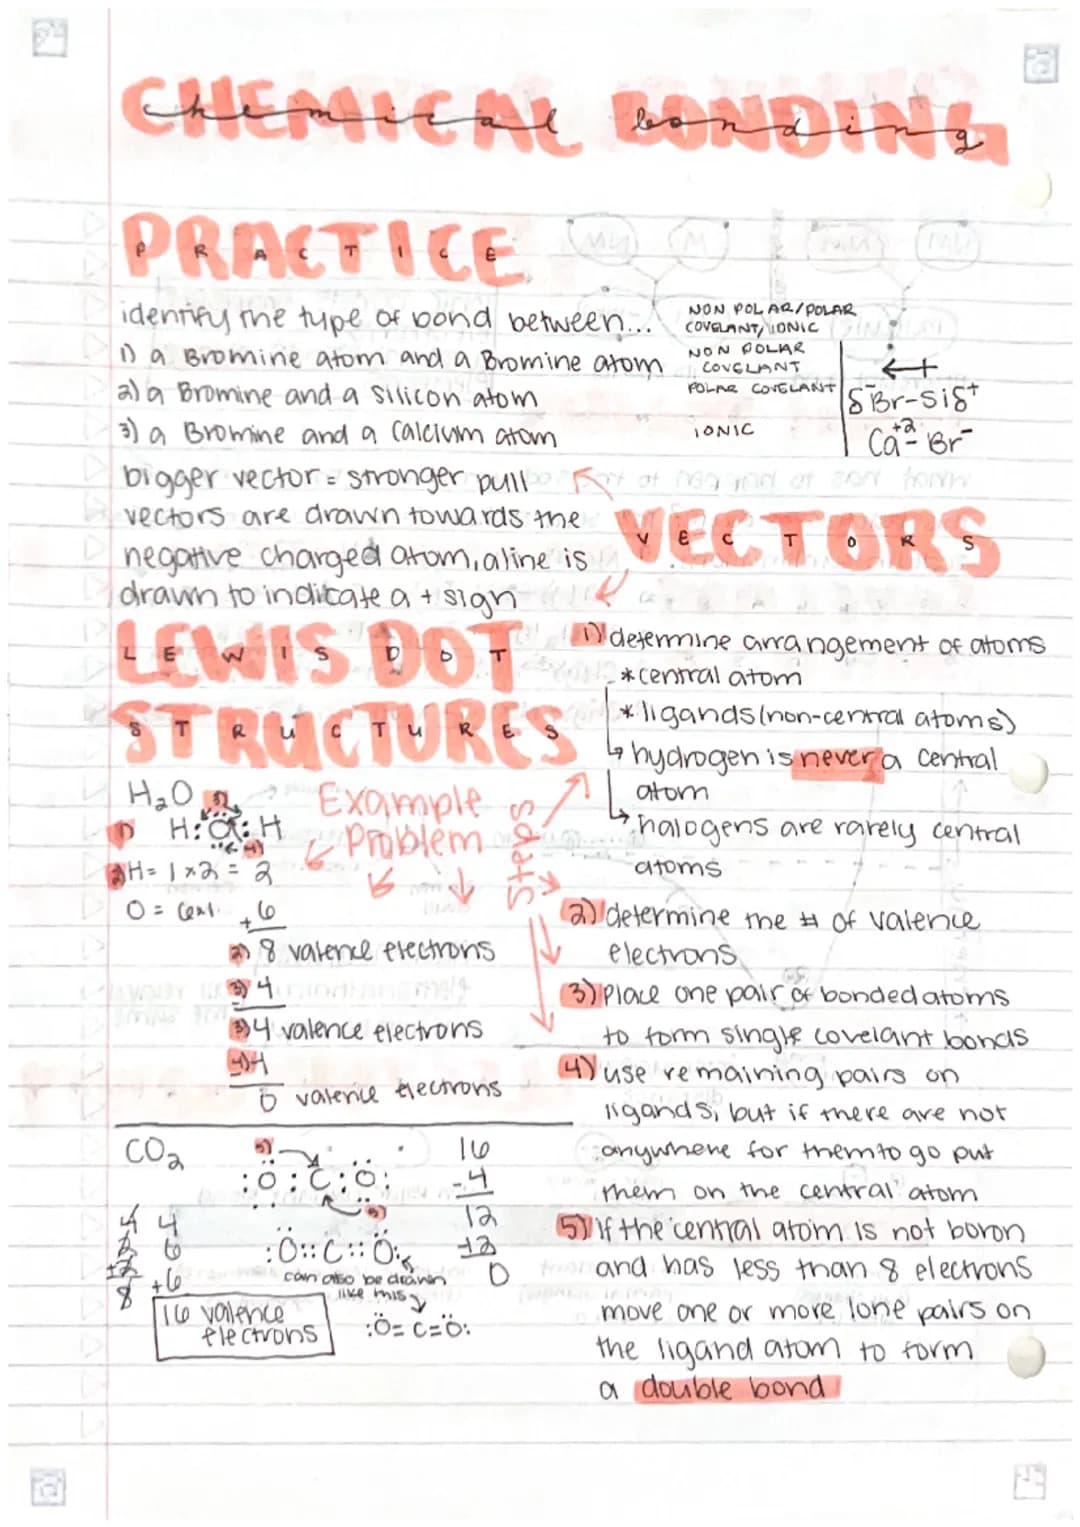 CHEMICAL BONDING
chemical bonding
PRACTICE
identify the type of bond between...
NON POLAR/POLAR
COVELANT, IONIC
1) a Bromine atom and a Bromine atom
NON POLAR
COVELANT
2) a Bromine and a Silicon atom
POLAR COVELANT
δ⁻Br-Siδ⁺
3) a Bromine and a Calcium atom
IONIC
Ca⁺²- Br⁻
VECTORS
bigger vector = stronger pull
vectors are drawn towards the
negative charged atom, a line is
drawn to indicate a + sign
LEWIS DOT
STRUCTURES
Steps
1) determine arrangement of atoms
* central atom
* ligands (non-central atoms)
↳ hydrogen is never a central
atom
↳ halogens are rarely central
atoms
2) determine the # of valence
electrons
3) Place one pair of bonded atoms
to form single covelant bonds
4) use remaining pairs on
ligands, but if there are not
anywhere for them to go put
them on the central atom
5) If the central atom is not boron
and has less than 8 electrons
move one or more lone pairs on
the ligand atom to form
a double bond
Example
Problem
H₂O
3)
1) H:O:H
4)
2) H = 1×2 = 2
O = 6×1
+6
2) 8 valence electrons
3) 4
3) 4 valence electrons
4) 4
0 valence electrons
CO₂
5)
:O:C:O:
5)
16
-4
12
-12
0
:O::C::O:
can also be drawn
like this
:O=C=O:
4
6
+6
8
16 valence
electrons